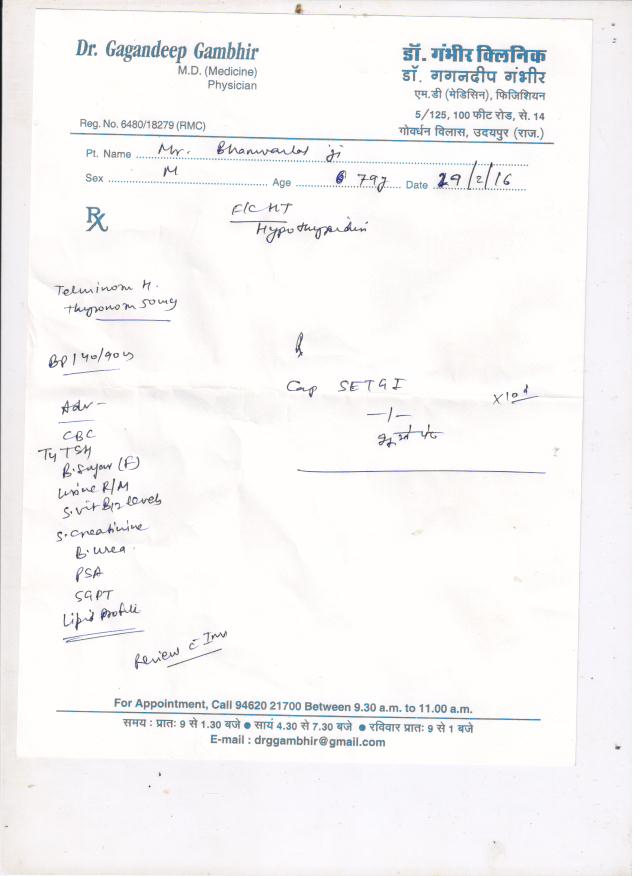 Dr. Gagandeep Gambhir
M.D. (Medicine)
Physician
Reg. No. 6480/18279 (RMC)
डॉ. गंभीर क्लिनिक
डॉ. गगनदीप गंभीर
एम.डी (मेडिसिन), फिजिशियन
5/125, 100 फीट रोड, से. 14
गोवर्धन विलास, उदयपुर (राज.)
Pt. Name Mr. Bhanwarlal ji
Sex M Age 79y Date 29/2/16
Rx
F/C HT
Hypothyroidism
Telminorm H.
Thyronorm 50mcg
BP 140/90
Adv -
CBC
T4 TSH
B. Sugar (F)
Urine R/M
S. Vit B12 levels
S. Creatinine
B. Urea
PSA
SGPT
Lipid Profile
Review c̄ Inv
Rx
Cap SETGI x 10 d
—/—
For Appointment, Call 94620 21700 Between 9.30 a.m. to 11.00 a.m.
समय : प्रातः 9 से 1.30 बजे ● सायं 4.30 से 7.30 बजे ● रविवार प्रातः 9 से 1 बजे
E-mail : drggambhir@gmail.com